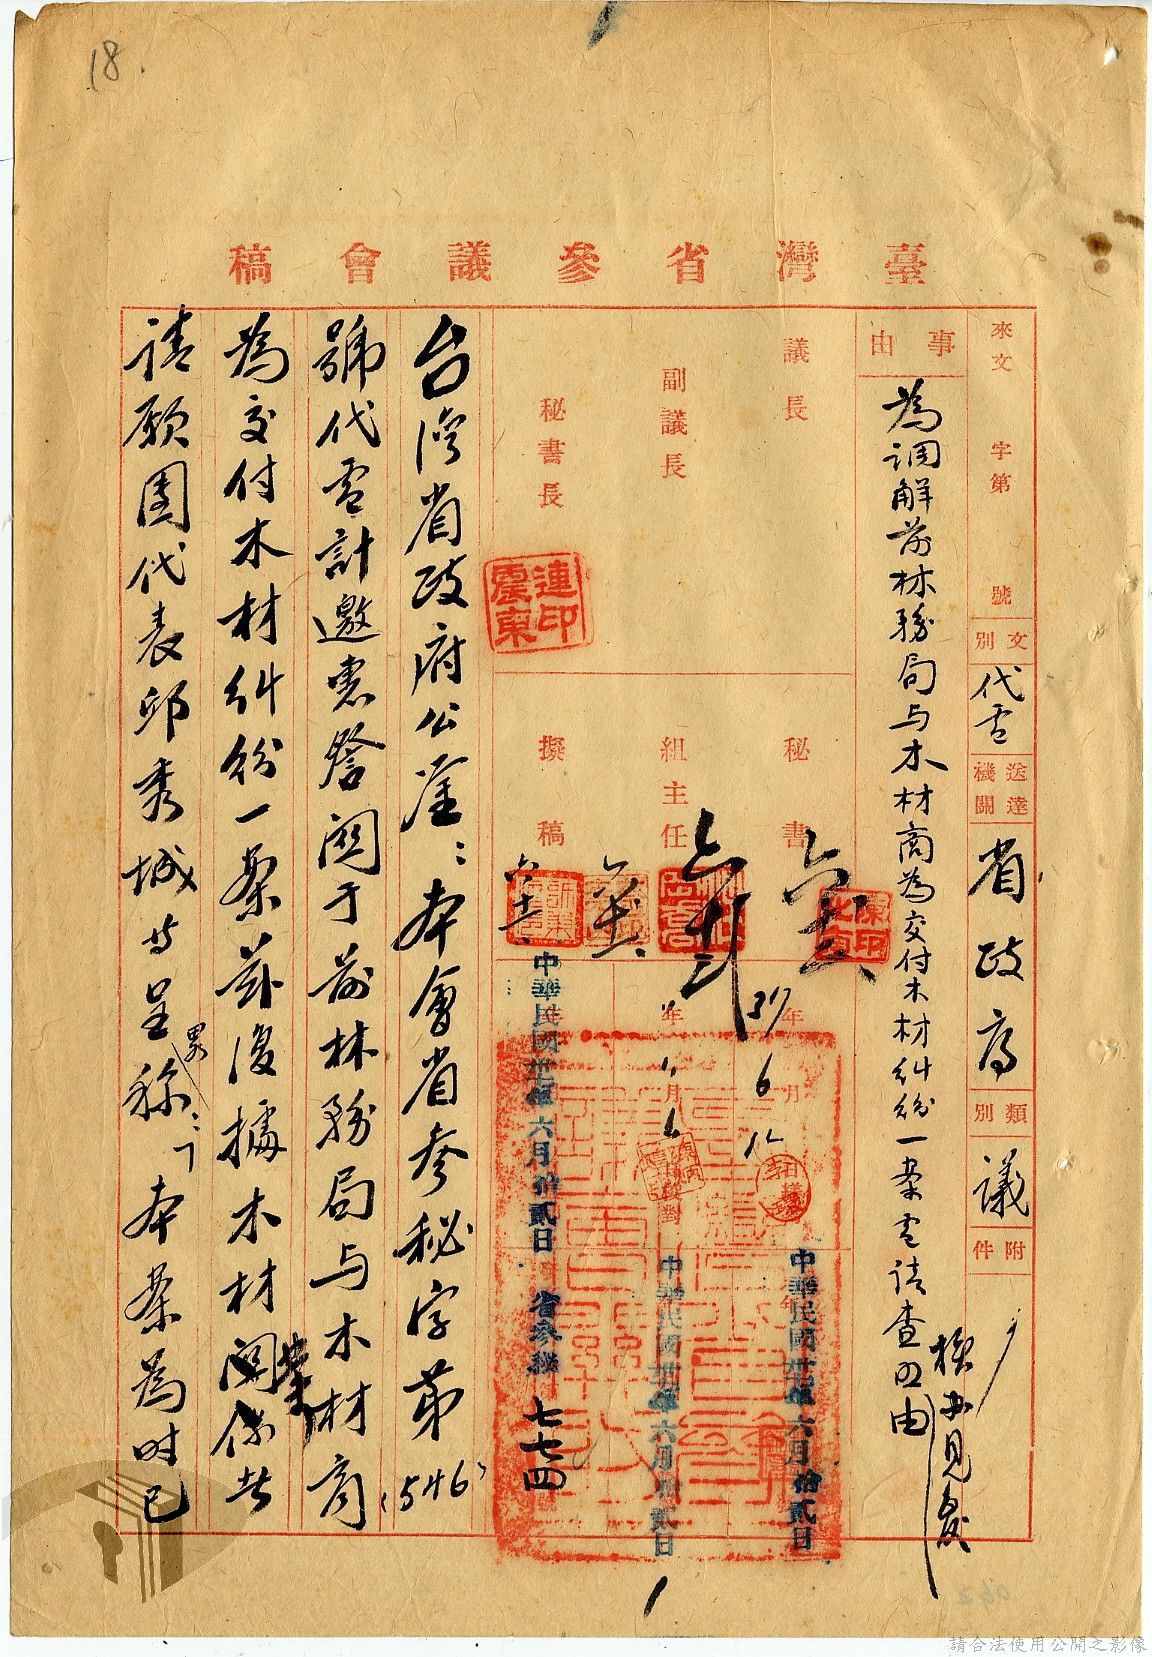 18.
臺灣省參議會稿
來文 字第 號
文別 代電
送達機關 省政府
類別 議
附件
事由
為調解前林務局與木材商為交付木材糾紛一案電請查照由
議長
副議長
秘書長
連震東印
秘書
組主任
擬稿
37年6月12
中華民國卅七年六月拾貳日
中華民國卅七年六月拾貳日
中華民國卅七年六月拾貳日
省參秘 七七四
台灣省政府公鑒：本會省參秘字第(546)
號代電計邀惠詧關于前林務局与木材商
為交付木材糾紛一案茲復據木材関係業者
請願團代表邱秀城等呈称畧：「本案為时已
1
請合法使用公開之影像